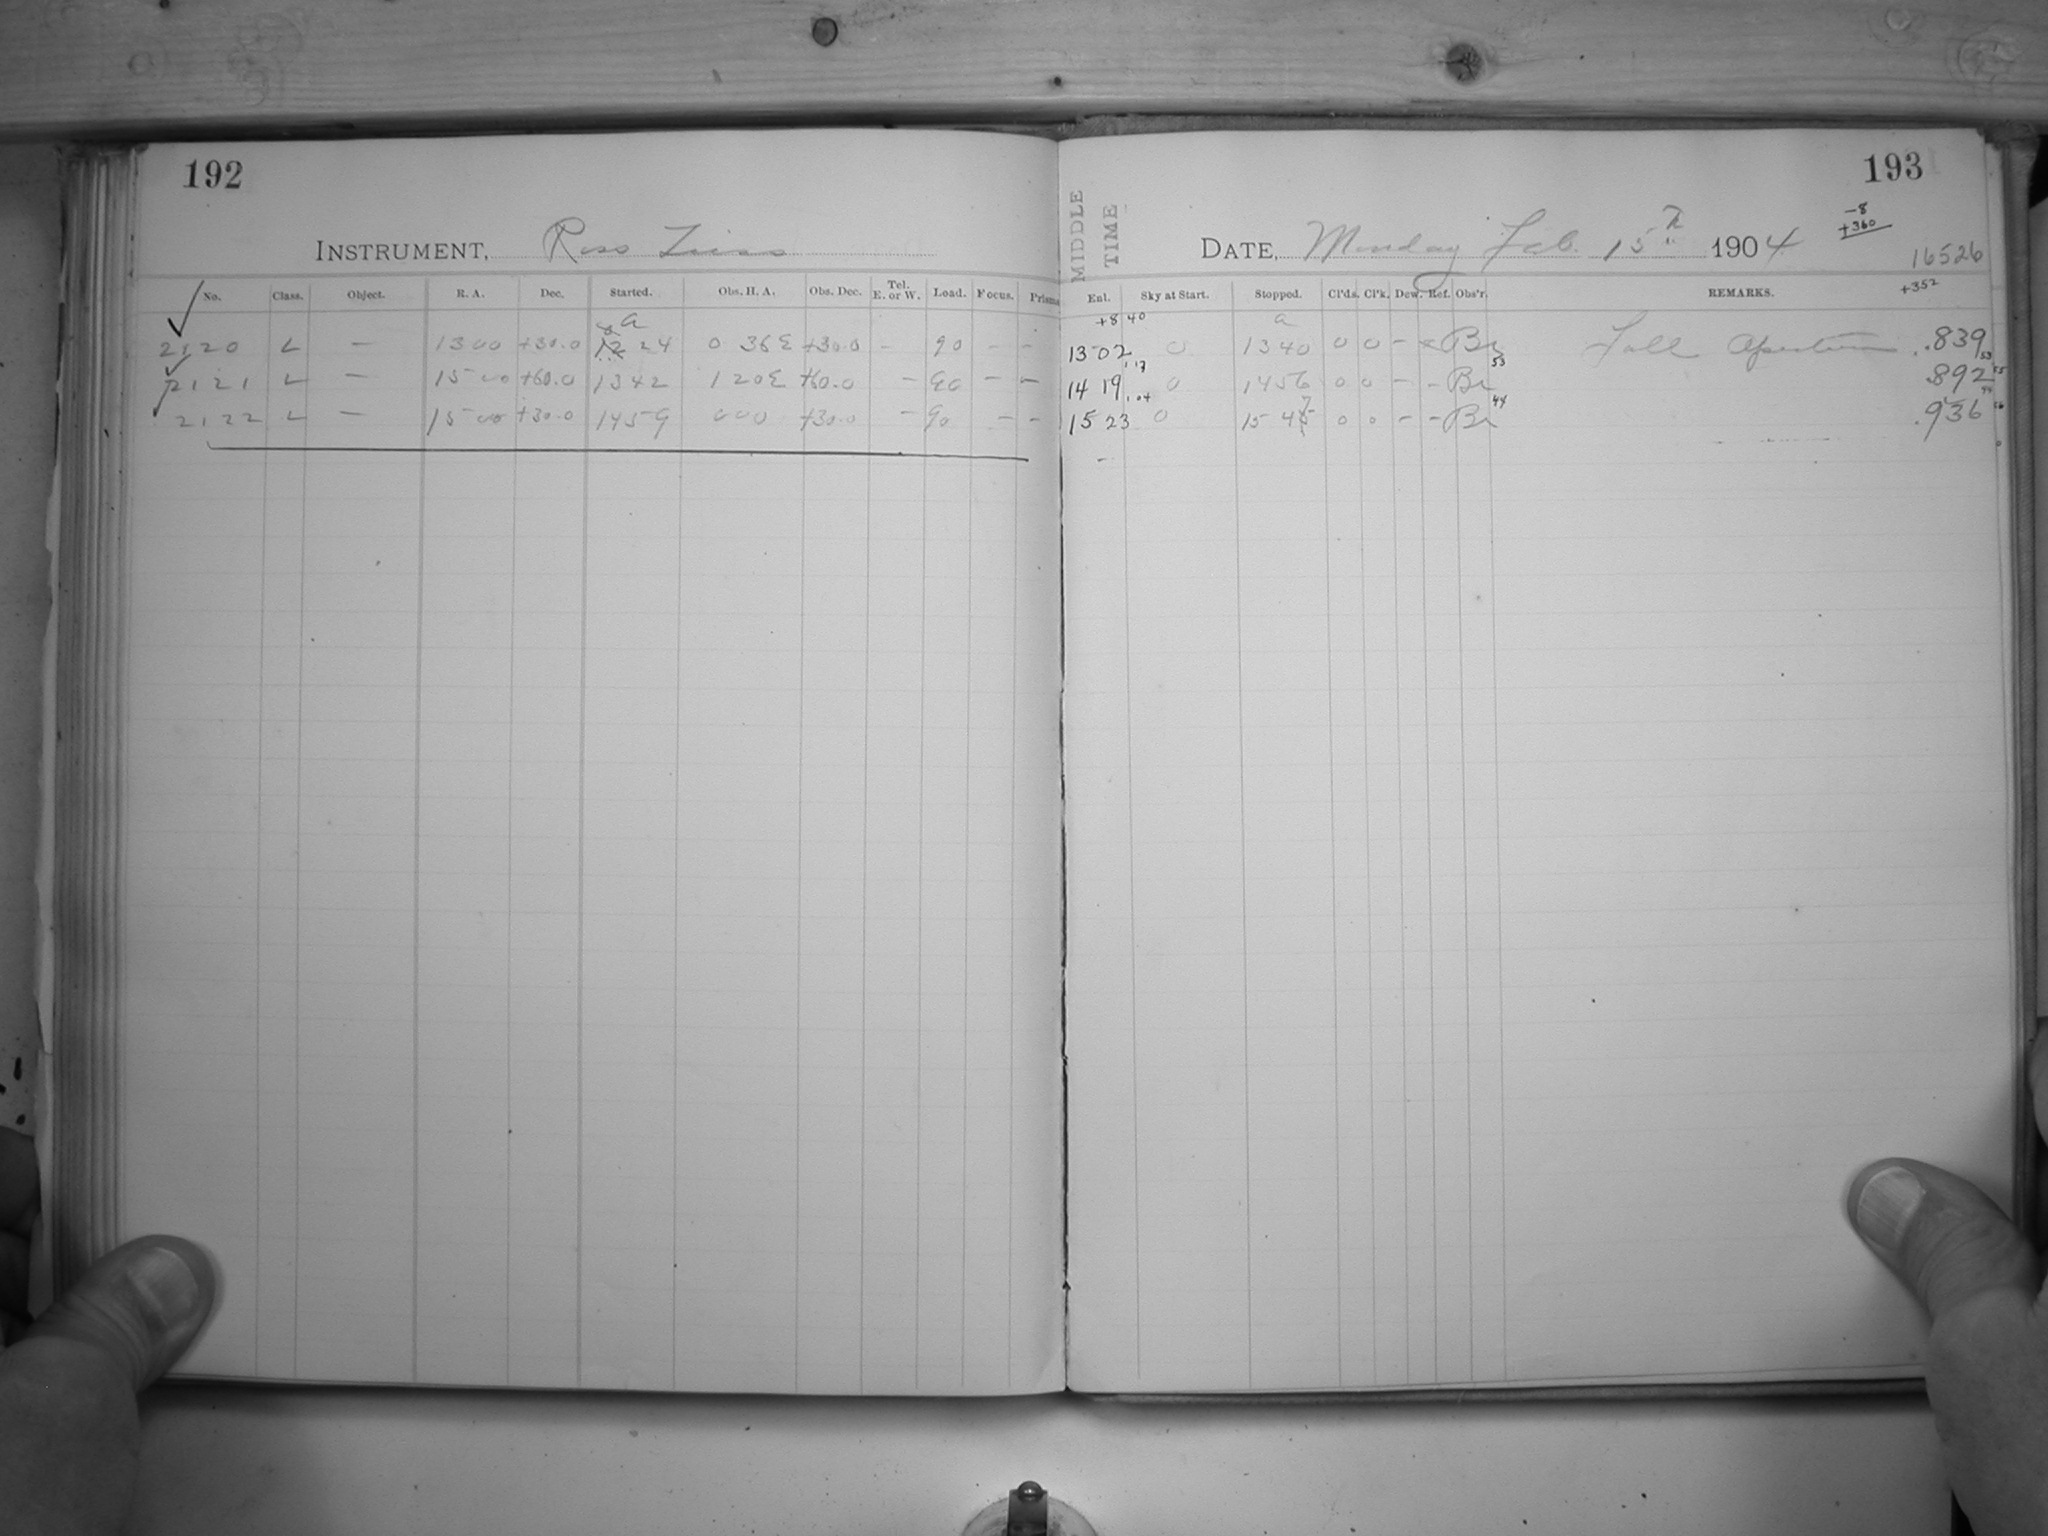 192
INSTRUMENT, Ross Zeiss
No. Class. Object. R. A. Dec. Started. Obs. H. A. Obs. Dec. Tel. E. or W. Load. Focus. Prisms
a
2120 L — 13 00 +30.0 12 24 0 36 E +30.0 - 90 - -
2121 L — 15 00 +60.0 13 42 1 20 E +60.0 - 90 - -
2122 L — 15 00 +30.0 14 59 0 00 +30.0 - 90 - -
193
MIDDLE
TIME
-8
+360
DATE, Monday Feb. 15th 1904
16526
+352
Enl. Sky at Start. Stopped. Cl'ds. Cl'k. Dew. Ref. Obs'r. REMARKS.
+8 40 a
13 02 0 13 40 0 0 - - Br Full Aperture .839
1.17 53 53
14 19 0 14 56 0 0 - - Br .892
1.04 44
15 23 0 15 47 0 0 - - Br .936